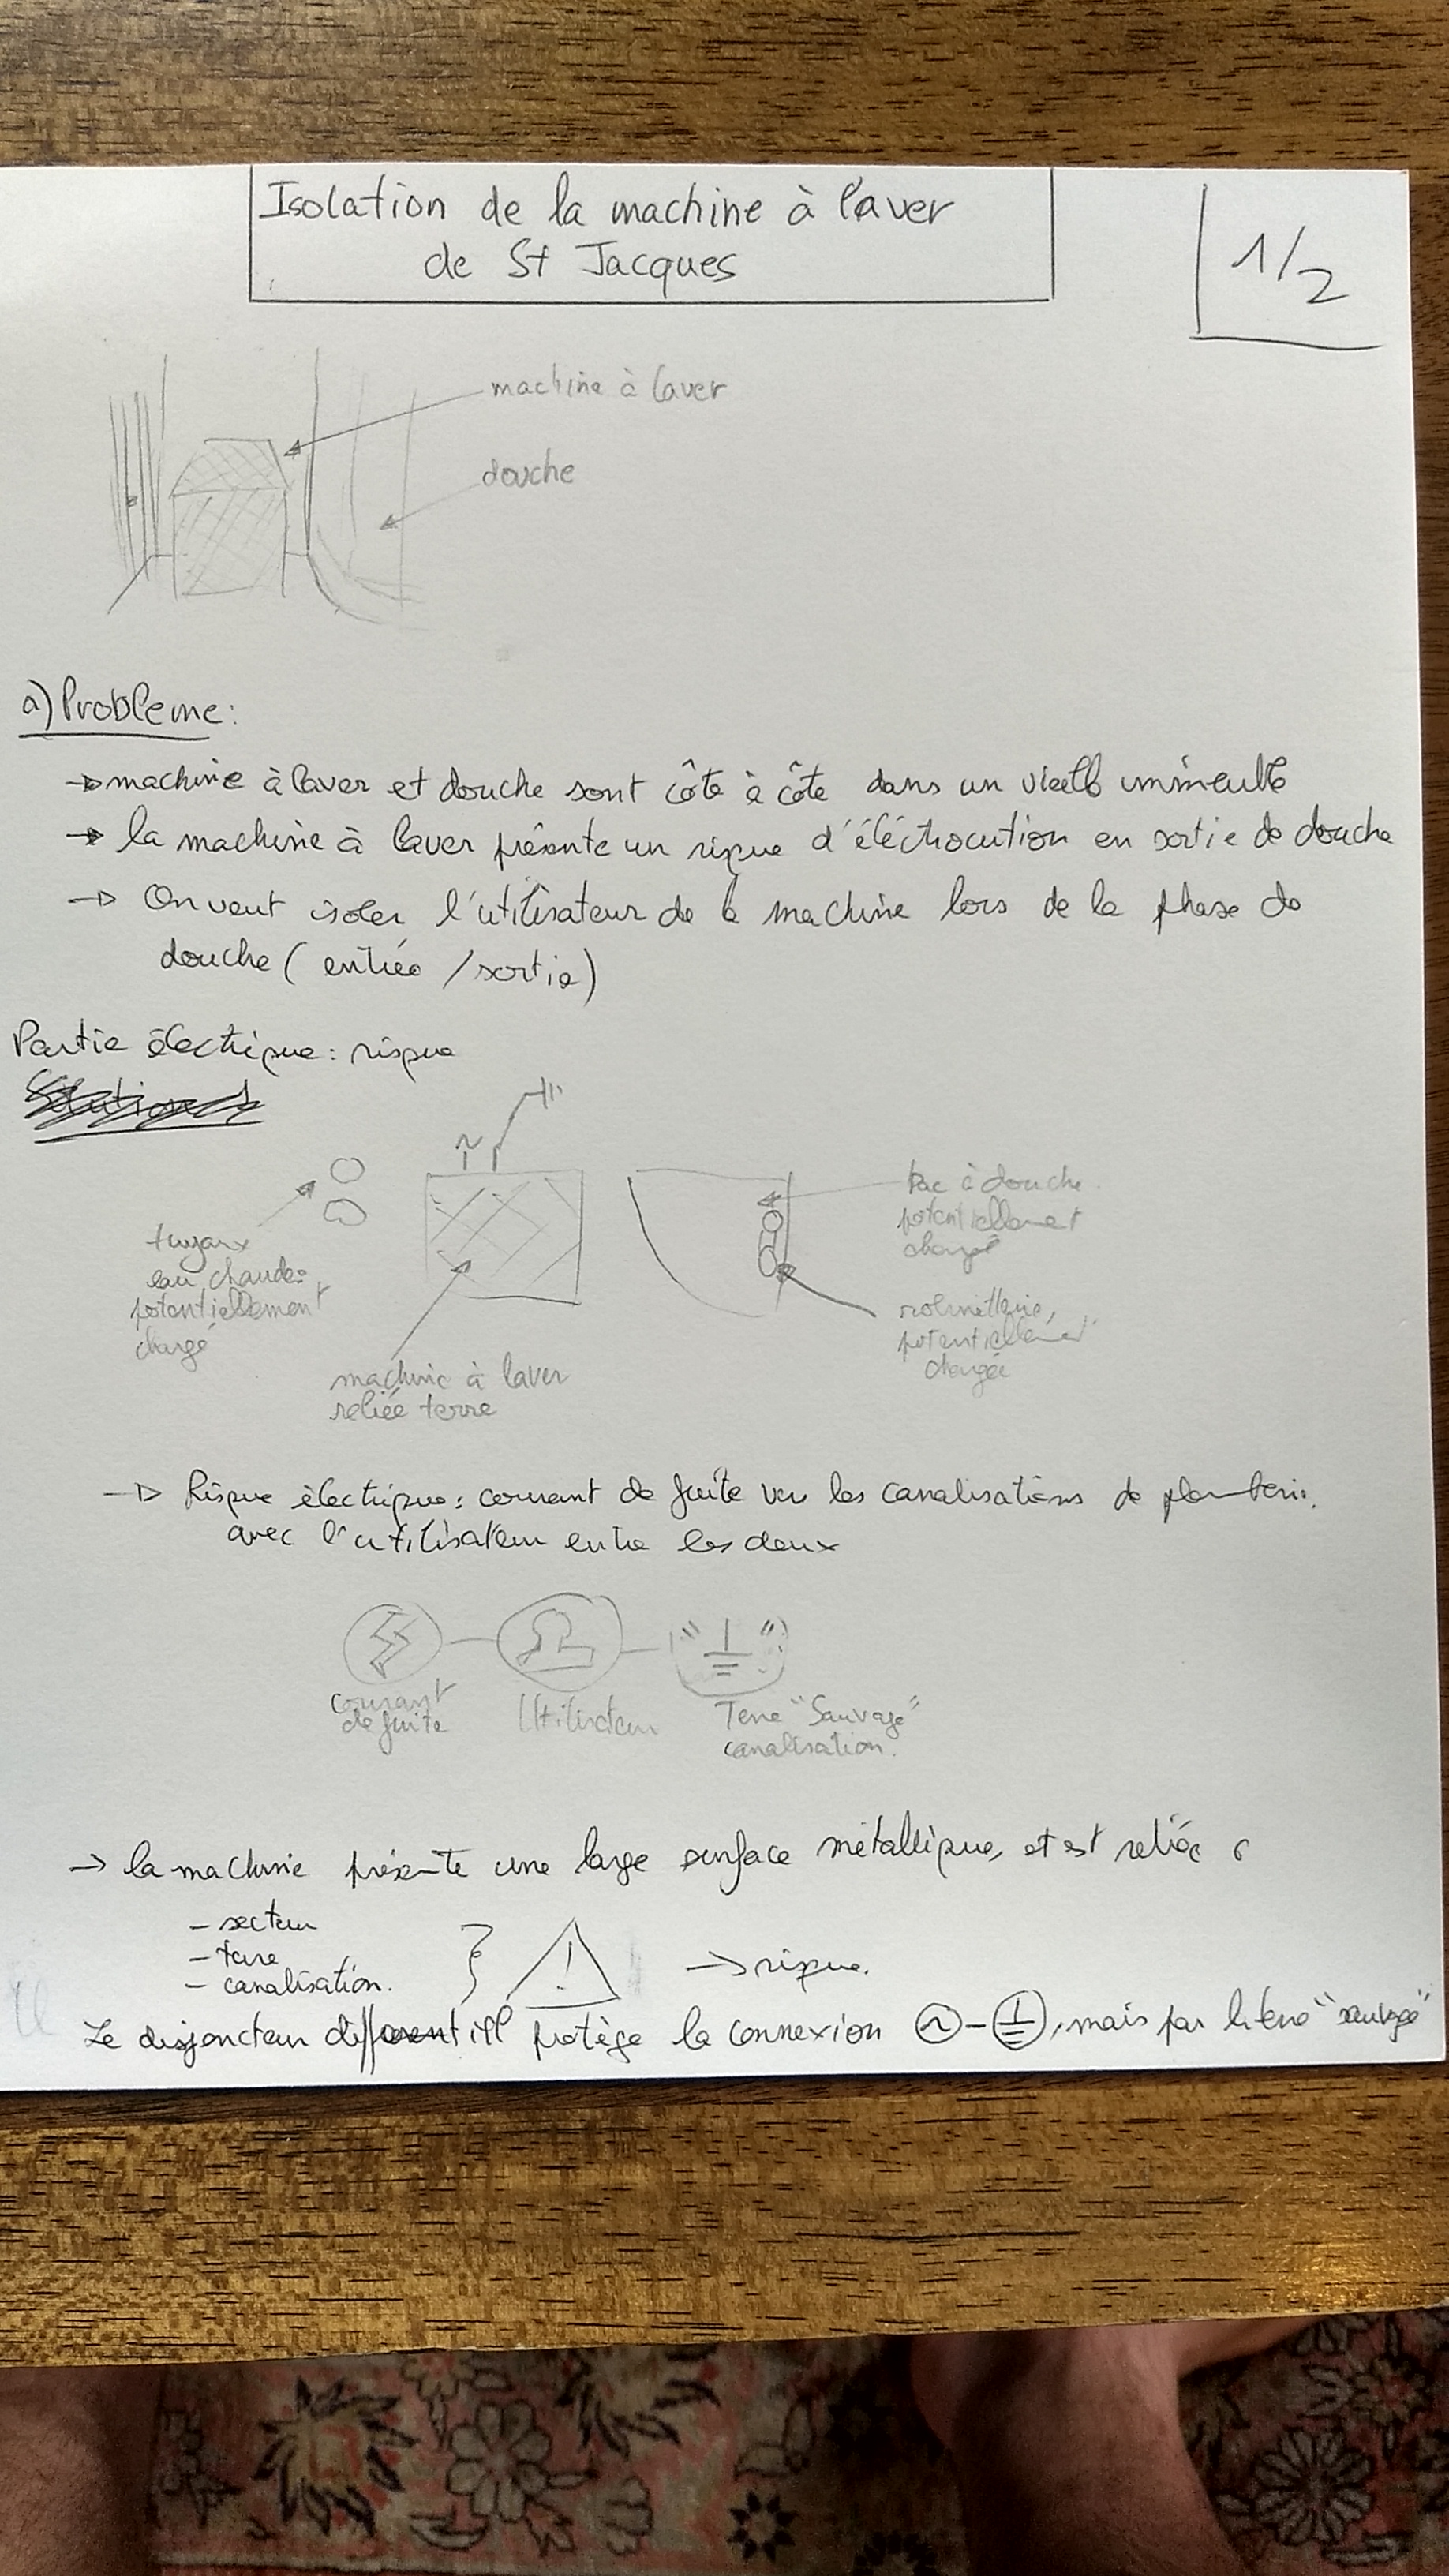 Isolation de la machine à laver
de St Jacques
1/2
machine à laver
douche
a) Probleme:
→ machine à laver et douche sont côte à côte dans un vieil immeuble
→ la machine à laver présente un risque d'éléctrocution en sortie de douche
→ On veut isoler l'utilisateur de la machine lors de la phase de
douche (entrée / sortie)
Partie électrique: risque
~
bac à douche
potentiellement
chargé
tuyaux
eau chaude:
potentiellement
chargé
robinetterie,
potentiellement
chargée
machine à laver
reliée terre
→ Risque électrique: courant de fuite vers les canalisations de plomberie.
avec l'utilisateur entre les deux
courant
de fuite
Utilisateur
Terre "Sauvage"
canalisation.
→ la machine présente une large surface métallique, et est reliée
- secteur
- terre
- canalisation.
} ! → risque.
Le disjoncteur différentiel protège la connexion ~ - ⏚, mais pas la terre "sauvage"